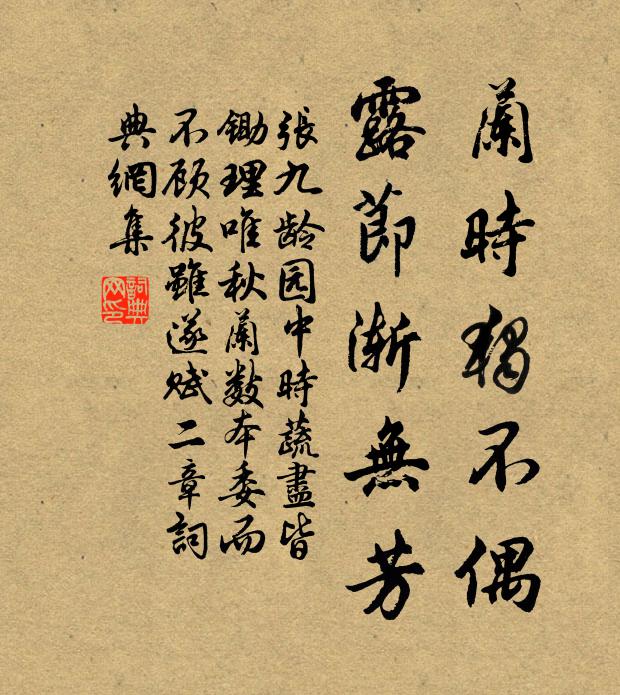 蘭時獨不偶
露節漸無芳
張九龄园中時蔬盡皆
鋤理唯秋蘭数本委而
不顾彼雖遂赋二章詞
典網集
詞典
网印